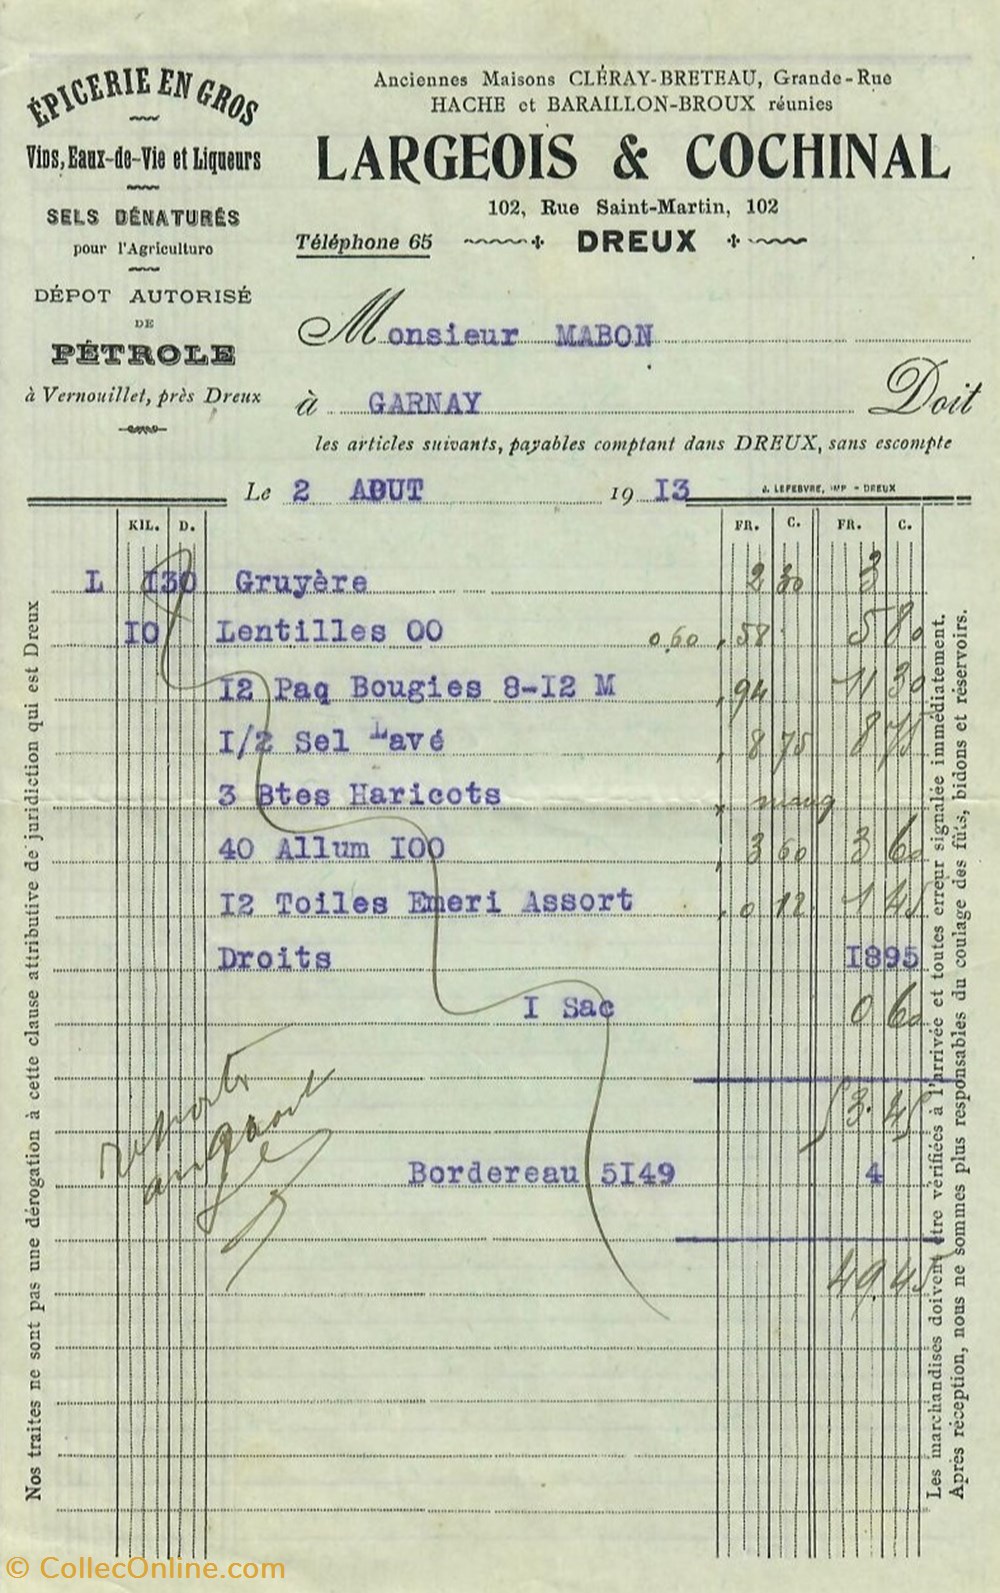 ÉPICERIE EN GROS
Vins, Eaux-de-Vie et Liqueurs
SELS DÉNATURÉS
pour l'Agriculture
DÉPOT AUTORISÉ
DE
PÉTROLE
à Vernouillet, près Dreux
Anciennes Maisons CLÉRAY-BRETEAU, Grande-Rue
HACHE et BARAILLON-BROUX réunies
LARGEOIS & COCHINAL
102, Rue Saint-Martin, 102
Téléphone 65 DREUX
Monsieur MABON
à GARNAY Doit
les articles suivants, payables comptant dans DREUX, sans escompte
Le 2 AOUT 1913
J. LEFEBVRE, IMP - DREUX
KIL. D. FR. C. FR. C.
L 130 Gruyère 2 30 3
10 Lentilles OO 0,60 , 58 5 80
12 Paq Bougies 8-12 M , 94 11 30
1/2 Sel Lavé , 8 75 8 75
3 Btes Haricots manq
40 Allum 100 , 3 60 3 60
12 Toiles Emeri Assort , 0 12 1 45
Droits 1895
1 Sac 0 60
53.45
Bordereau 5149 4
49.45
Nos traites ne sont pas une dérogation à cette clause attributive de juridiction qui est Dreux
Les marchandises doivent être vérifiées à l'arrivée et toutes erreur signalée immédiatement.
Après réception, nous ne sommes plus responsables du coulage des fûts, bidons et réservoirs.
© CollecOnline.com